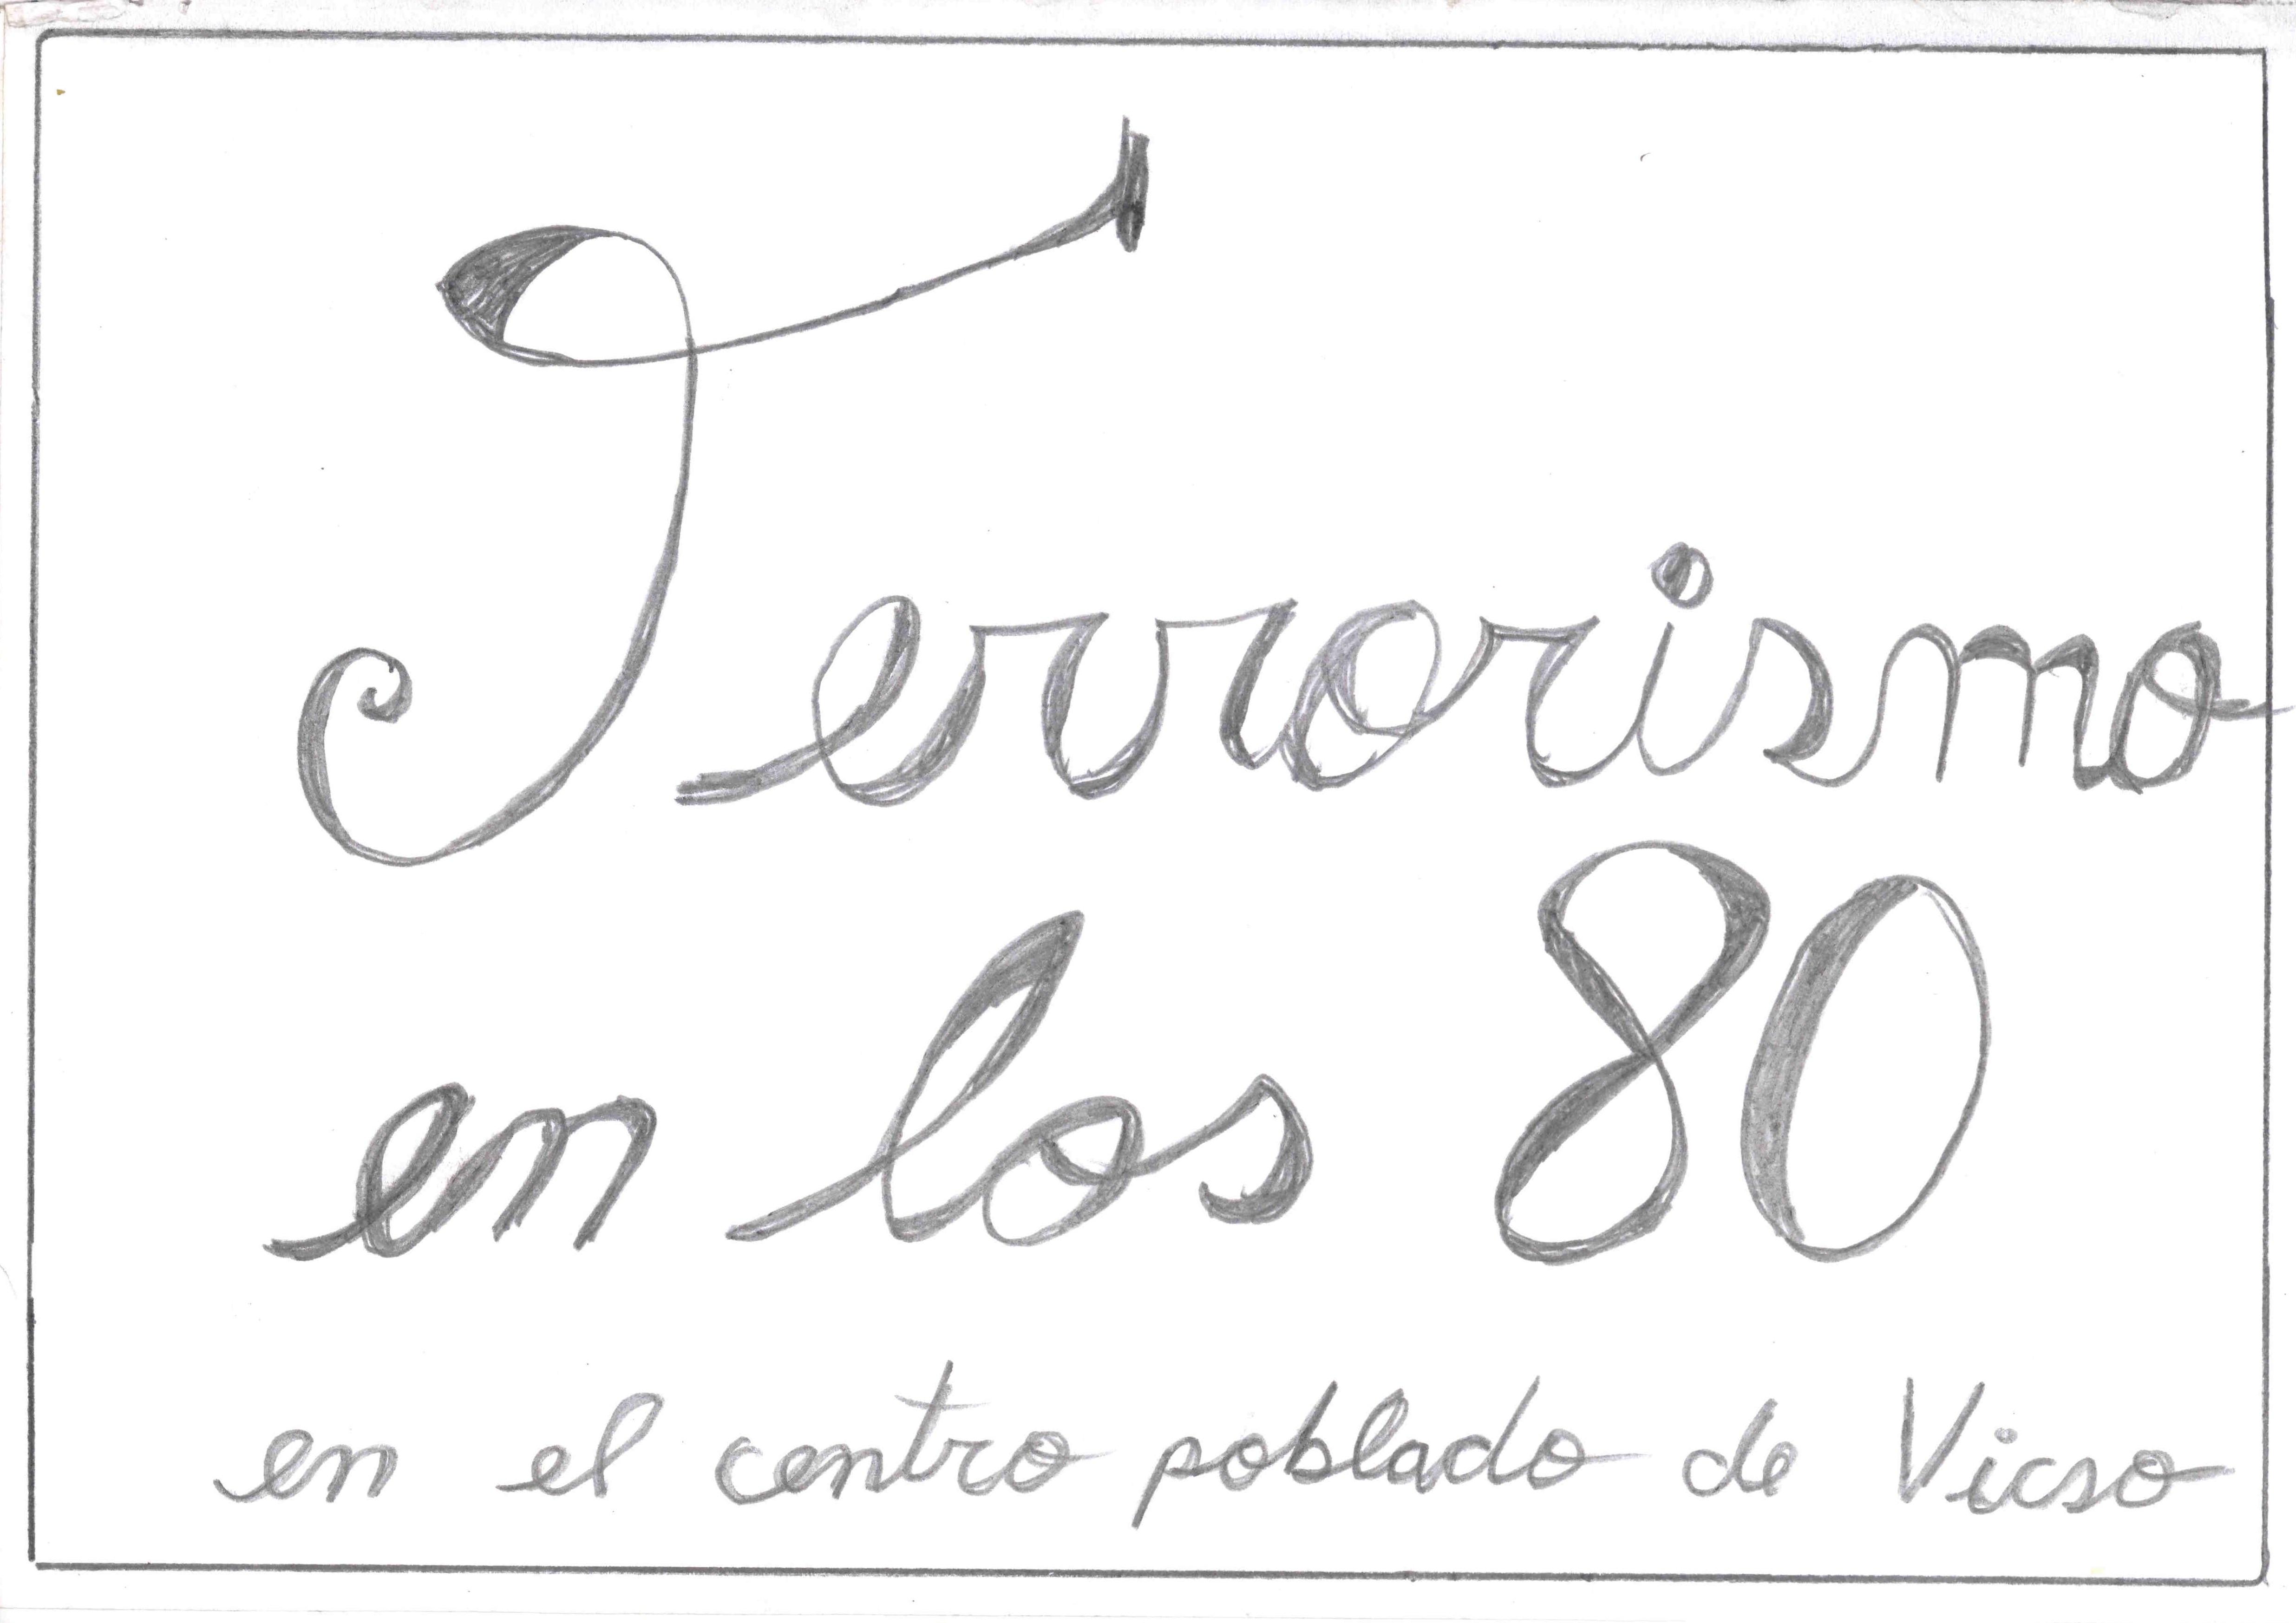 Terrorismo
en los 80
en el centro poblado de Vicso